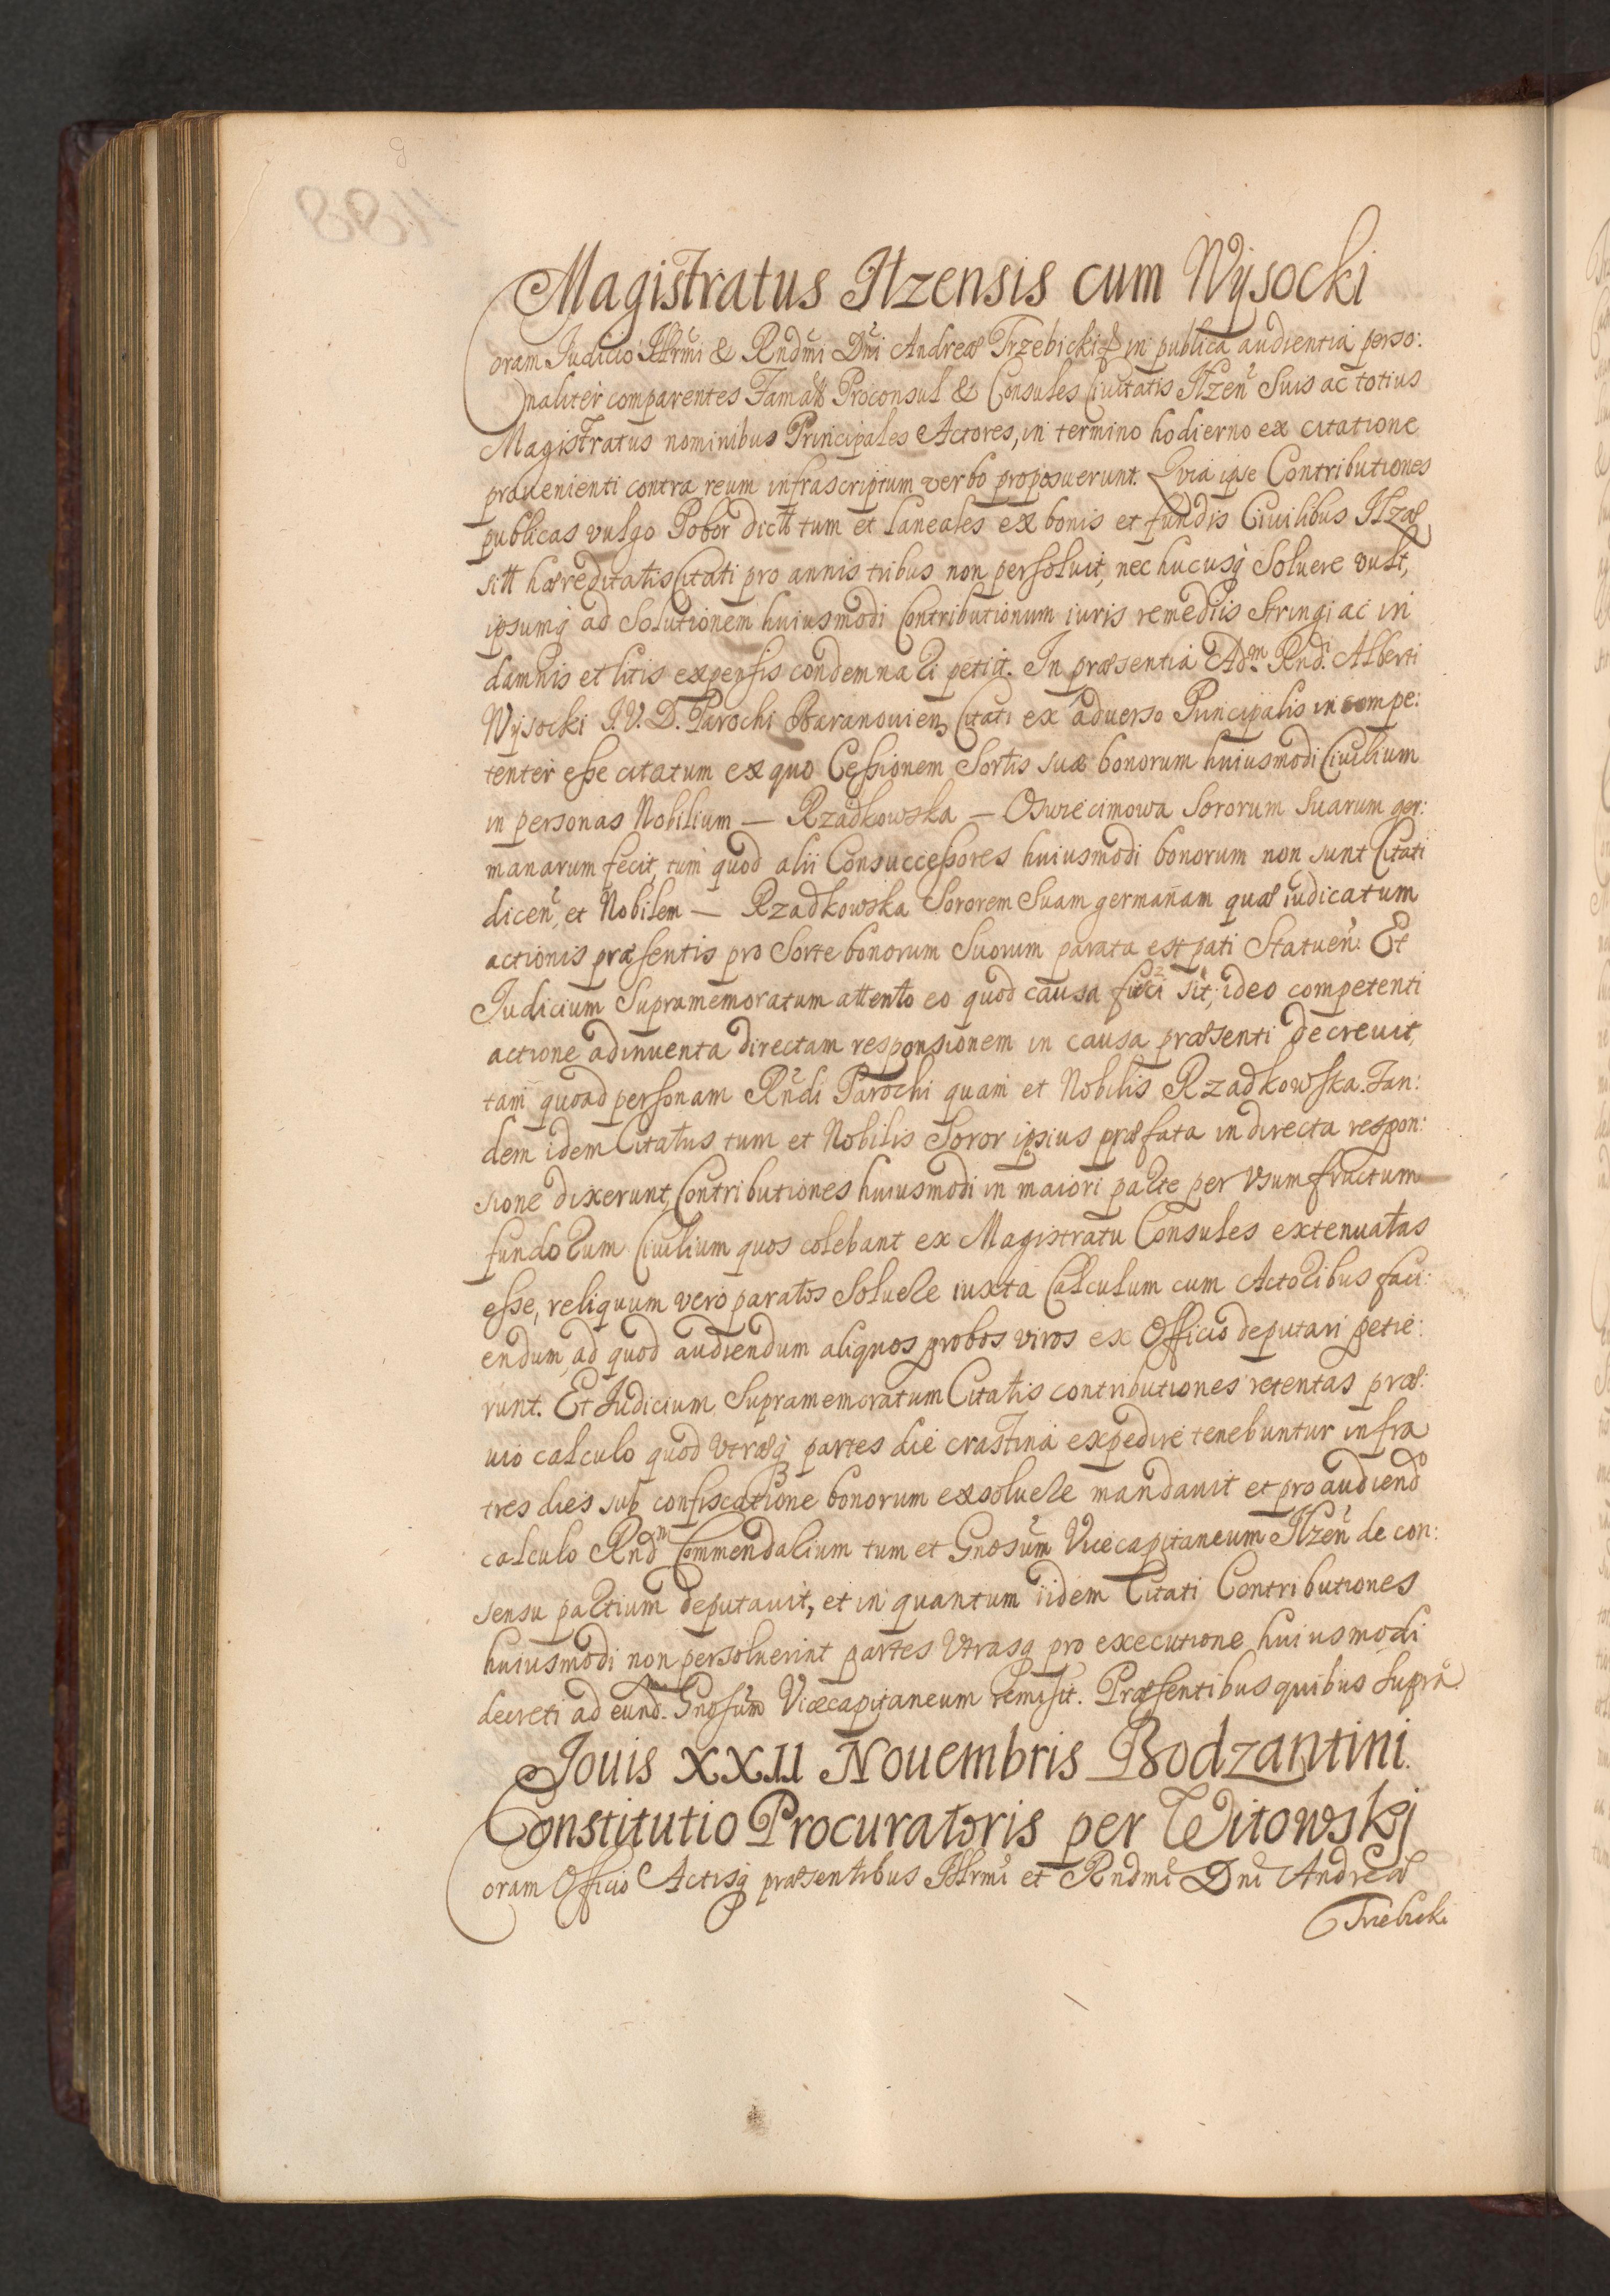 Magistratus Ilzensis cum Wysocki
Coram Judicio Illrmi & Rndmi Dni Andreæ Trzebicki in publica audientia perso:
naliter comparentes Famati Proconsul & Consules Civitatis Ilzen Suis ac totius
Magistratus nominibus Principales Actores, in termino hodierno ex citatione
provenienti contra reum infrascriptum verbo proposuerunt. Quia ipse Contributiones
publicas vulgo Pobor dictt tum et Laneales ex bonis et fundis Civilibus Ilzæ
sitt hæreditatis Citati pro annis tribus non persoluit, nec hucusq soluere vult,
ipsumq ad Solutionem huiusmodi Contributionum iuris remediis Stringi ac in
damnis et litis expensis condemnari petiit. In præsentia Adm Rndi Alberti
Wysocki I.V.D. Parochi Baranovien Citati ex adverso Principalis incompe:
tenter esse citatum ex quo Cessionem Sortis suæ bonorum huiusmodi Civilium
in personas Nobilium — Rzadkowska — Oswiecimowa Sororum Suarum ger:
manarum fecit, tum quod alii Consuccessores huiusmodi bonorum non sunt Citati
dicen, et Nobilem — Rzadkowska Sororem Suam germanam quæ iudicatum
actionis præsentis pro Sorte bonorum Suorum parata est pati Statuen. Et
Judicium Supramemoratum attento eo quod causa fisci sit, ideo competenti
actione adinventa directam responsionem in causa præsenti decrevit,
tam quoad personam Rndi Parochi quam et Nobilis Rzadkowska. Tan:
dem idem Citatus tum et Nobilis Soror ipsius præfata in directa respon:
sione dixerunt, Contributiones huiusmodi in maiori parte per Vsum fructum
fundorum Civilium quos colebant ex Magistratu Consules extenuatas
esse, reliquum vero paratos soluere iuxta Calculum cum Actoribus faci:
endum, ad quod audiendum aliquos probos viros ex Officio deputari petie:
runt. Et Judicium Supramemoratum Citatis contributiones retentas præ:
vio calculo quod Vtræq partes die crastina expedire tenebuntur infra
tres dies sub confiscatione bonorum exsoluere mandavit et pro audiend
calculo Rndm Commendarium tum et Gnosum Vicecapitaneum Ilzen de con:
sensu partium deputavit, et in quantum iidem Citati Contributiones
huiusmodi non persoluerint partes Vtrasq pro executione huiusmodi
decreti ad eund. Gnosum Vicecapitaneum remisit. Præsentibus quibus supra
Jouis XXII Nouembris Bodzantini.
Constitutio Procuratoris per Witowskj
Coram Officio Actisq præsentibus Illrmi et Rndmi Dni Andreæ
Trzebicki